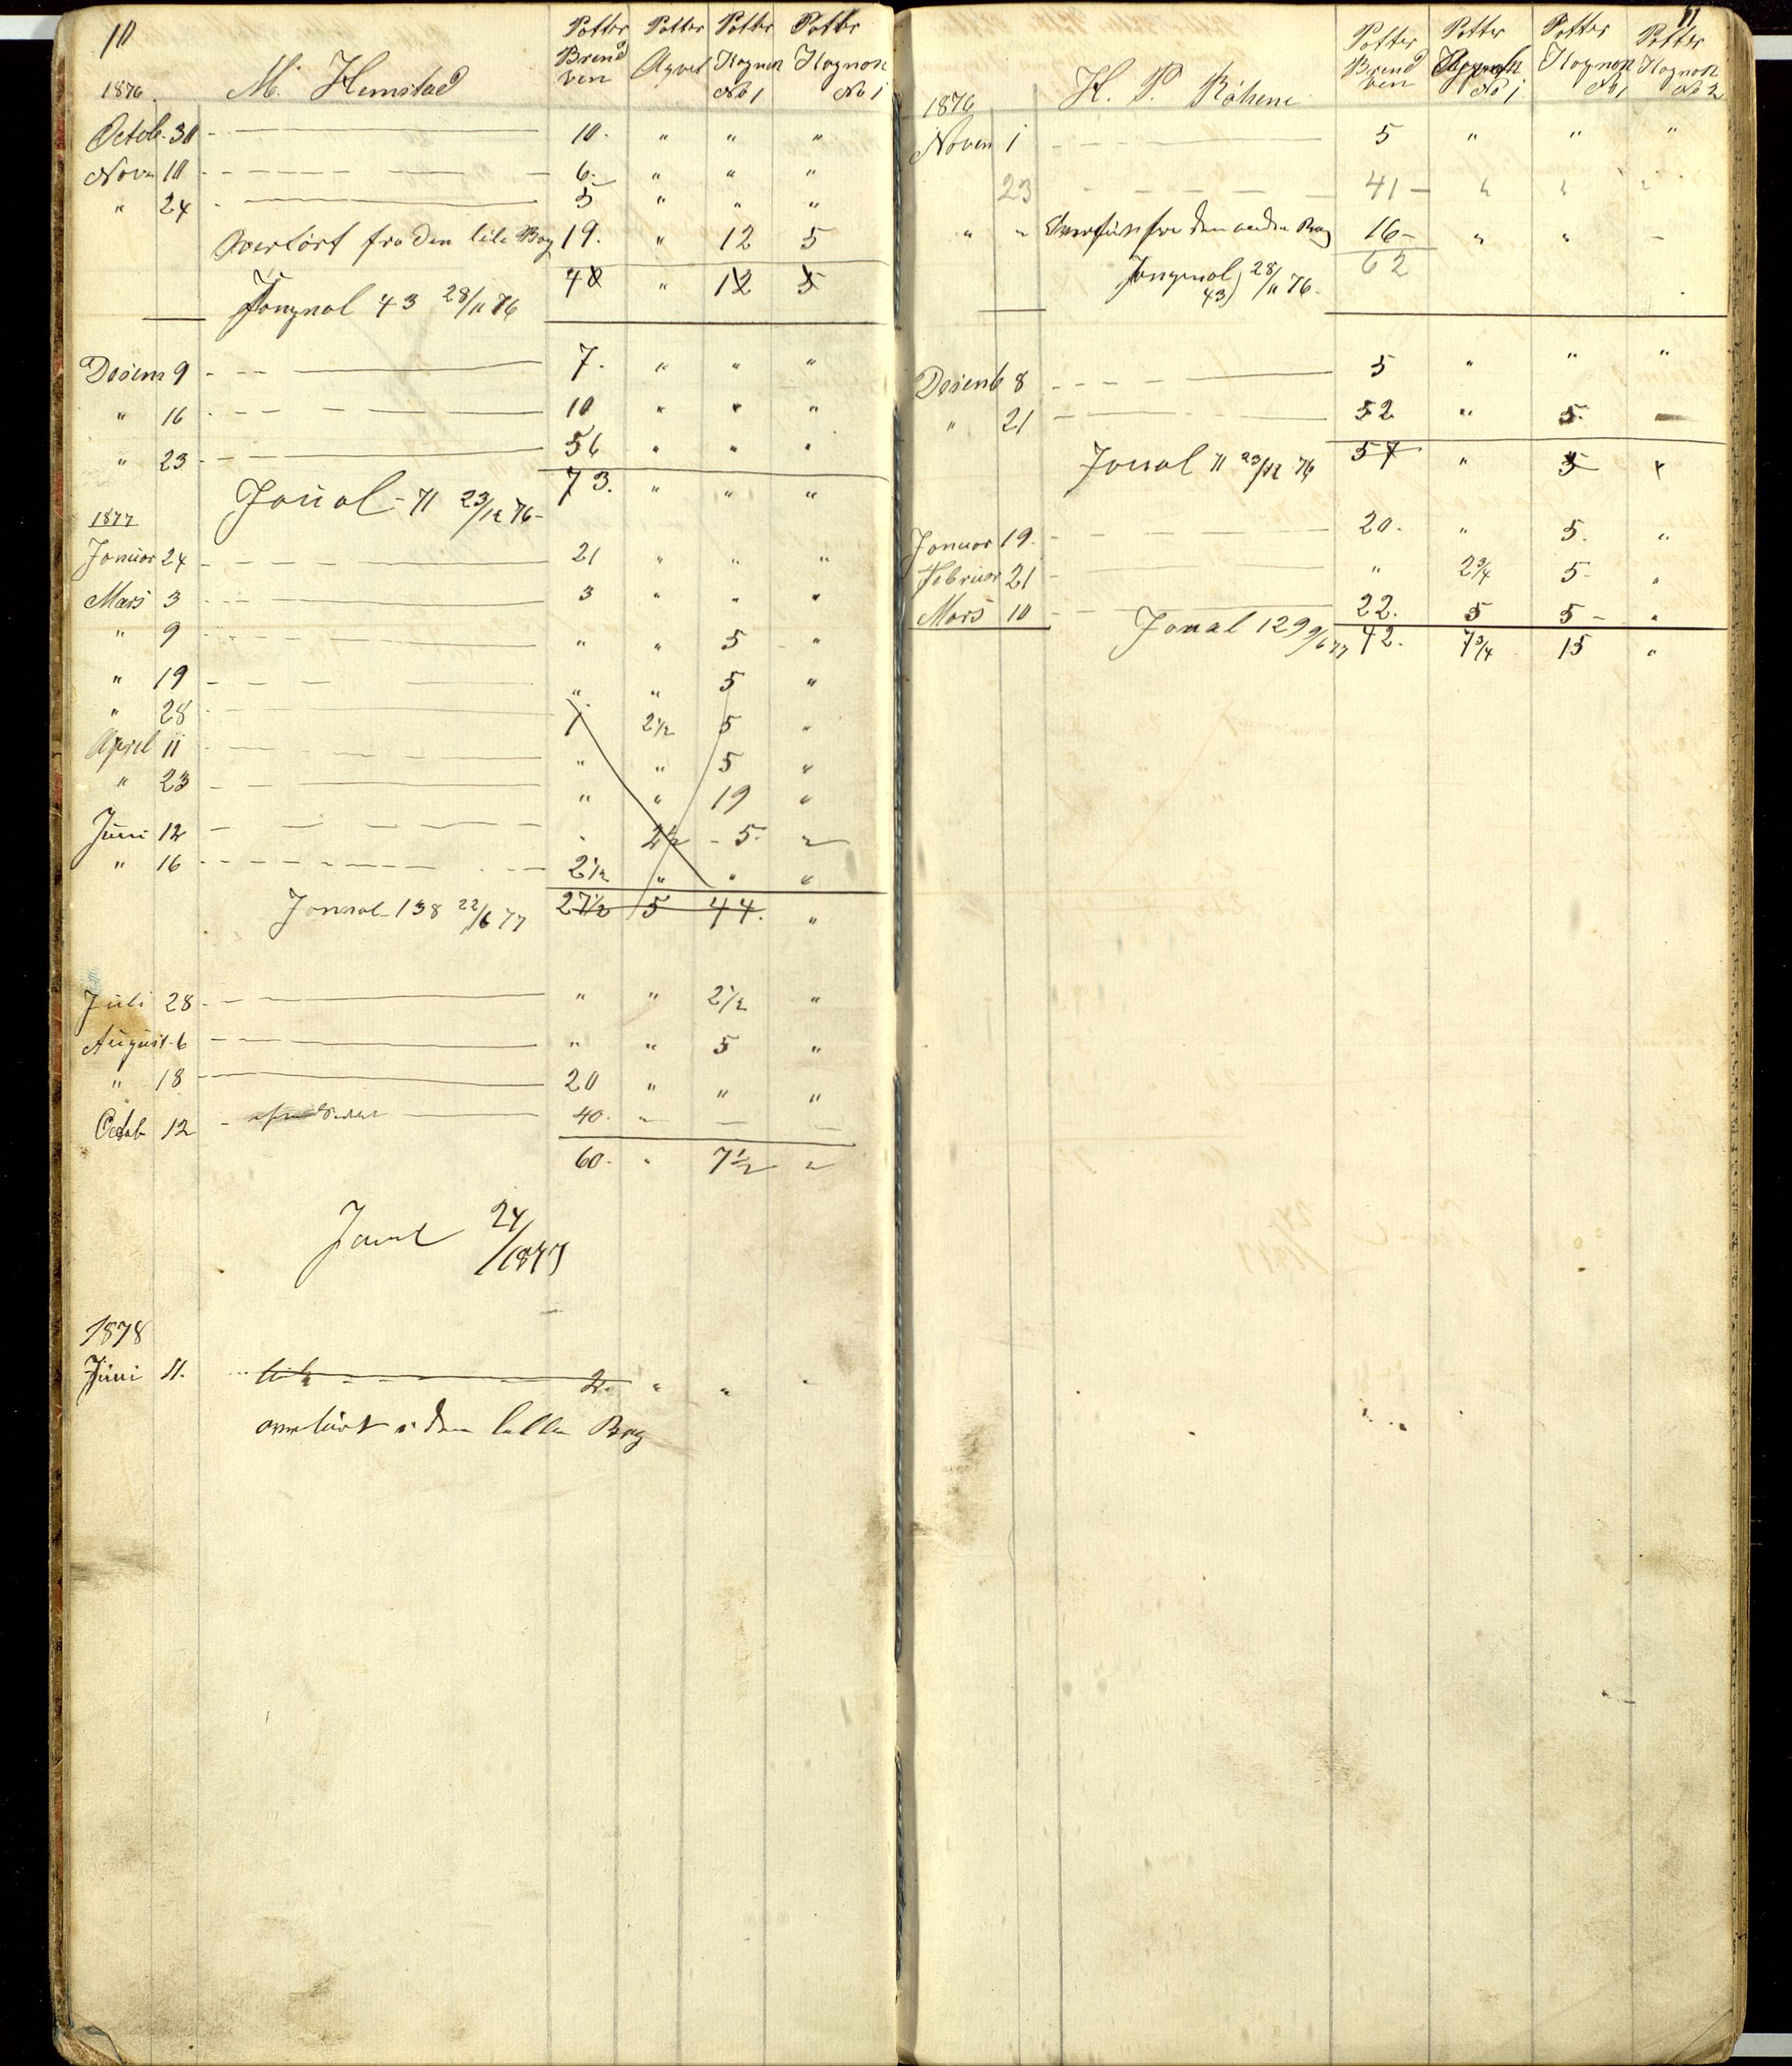 10
Potter Potter Potter Potter
Brend Aqvet Kognon Kognon
ven No 1 No 1
1876. M. Hemstad
Octob. 30 10. " " "
Nov. 10 6. " " "
" 24 5 " " "
Overført fra den lile Bog 19. " 12 5
Jongnal 43 28/11 76 40 " 12 5
Desem 9 7. " " "
" 16 10 " " "
" 23 56 " " "
Joual 71 23/12 76 73. " " "
1877
Januar 24 21 " " "
Mars 3 3 " " "
" 9 " " 5 "
" 19 " " 5 "
" 28 1 2 1/2 5 "
April 11 " " 5 "
" 23 " " 19 "
Juni 12 " 2 1/2 5. "
" 16 2 1/2 " " "
Jonnal 138 22/6 77 27 1/2 5 44. "
Juli 28 " " 2 1/2 "
August 6 " " 5 "
" 18 20 " " "
Octob 12 40. " — —
60. " 7 1/2 "
24/1877
1878
Juni 11. 2. " " "
overført i den lille Bog
11
Potter Potter Potter Potter
Brend Kognak Kognon Kognon
ven No 1 No 1 No 2
1876 H. P. Röhene
Novem 1 5 " " "
23 41 " " "
" " Overført fra den anden Bog 16 " " —
Jongnal 43) 28/11 76. 62
Desemb 8 5 " " "
" 21 52 " 5. —
Jonal 71 23/12 76 57 " 5
Januar 19. 20. " 5. "
Februar 21 " 2 3/4 5 "
Mars 10 22. 5 5 "
Jonal 129 9/6 77 42. 7 3/4 15 "